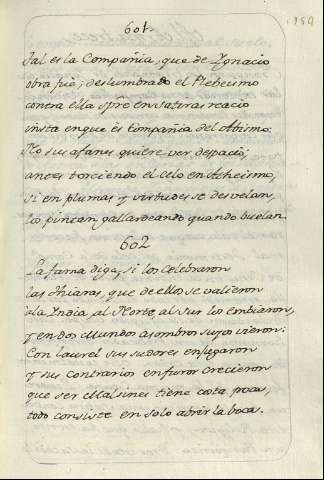 601.
159
Tal es la Compañia, que de Ygnacio
obra fuè; deslumbrado el Plebeismo
contra ella spre en saturas reacio
insta en que ès Compañia del Abismo.
No sus afanes quiere ver despacio;
antes torciendo el celo en Atheismo,
si en plumas y virtudes se desvelan,
lo pintan gallardeando quando buelan.
602
La fama diga, si los celebraron
las thiaras, que de ellos se valieron
a la India, al Norte, al sur los embiaron,
y en dos Mundos asombros suyos vieron:
Con laurel sus sudores enjugaron
y sus contrarios en furor crecieron
que ser Malsines tiene costa poca,
todo consiste en solo abrir la boca.